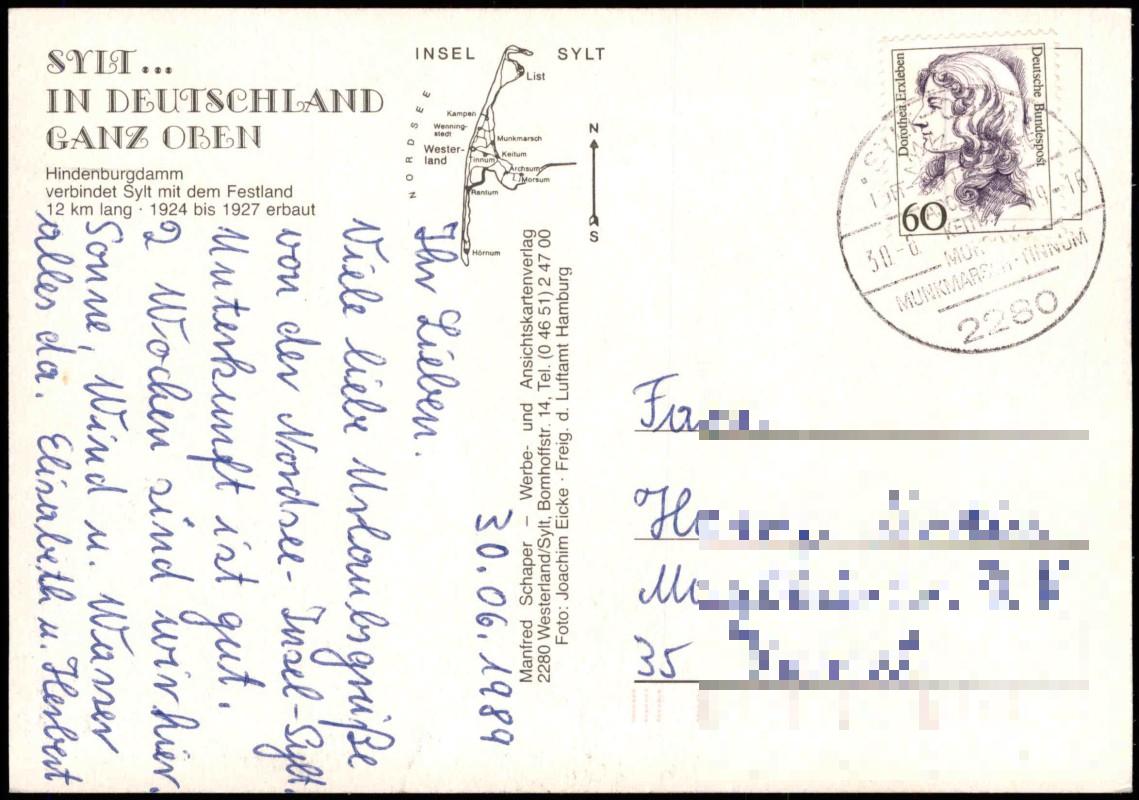 SYLT...
IN DEUTSCHLAND
GANZ OBEN
Hindenburgdamm
verbindet Sylt mit dem Festland
12 km lang · 1924 bis 1927 erbaut
INSEL SYLT
NORDSEE
List
Kampen
Wenning-
stedt
Munkmarsch
Wester-
land
Keitum
Tinnum
Archsum
Morsum
Rantum
Hörnum
N
S
Manfred Schaper – Werbe- und Ansichtskartenverlag
2280 Westerland/Sylt, Bomhoffstr. 14, Tel. (0 46 51) 2 47 00
Foto: Joachim Eicke · Freig. d. Luftamt Hamburg
30.06.1989
Ihr Lieben.
Viele liebe Urlaubsgrüße
von der Nordsee-Insel-Sylt.
Unterkunft ist gut.
2 Wochen sind wir hier.
Sonne, Wind u. Wasser
alles da. Elisabeth u. Herbert
Dorothea Erxleben
Deutsche Bundespost
60
MUNKMARSCH-TINNUM
2280
35